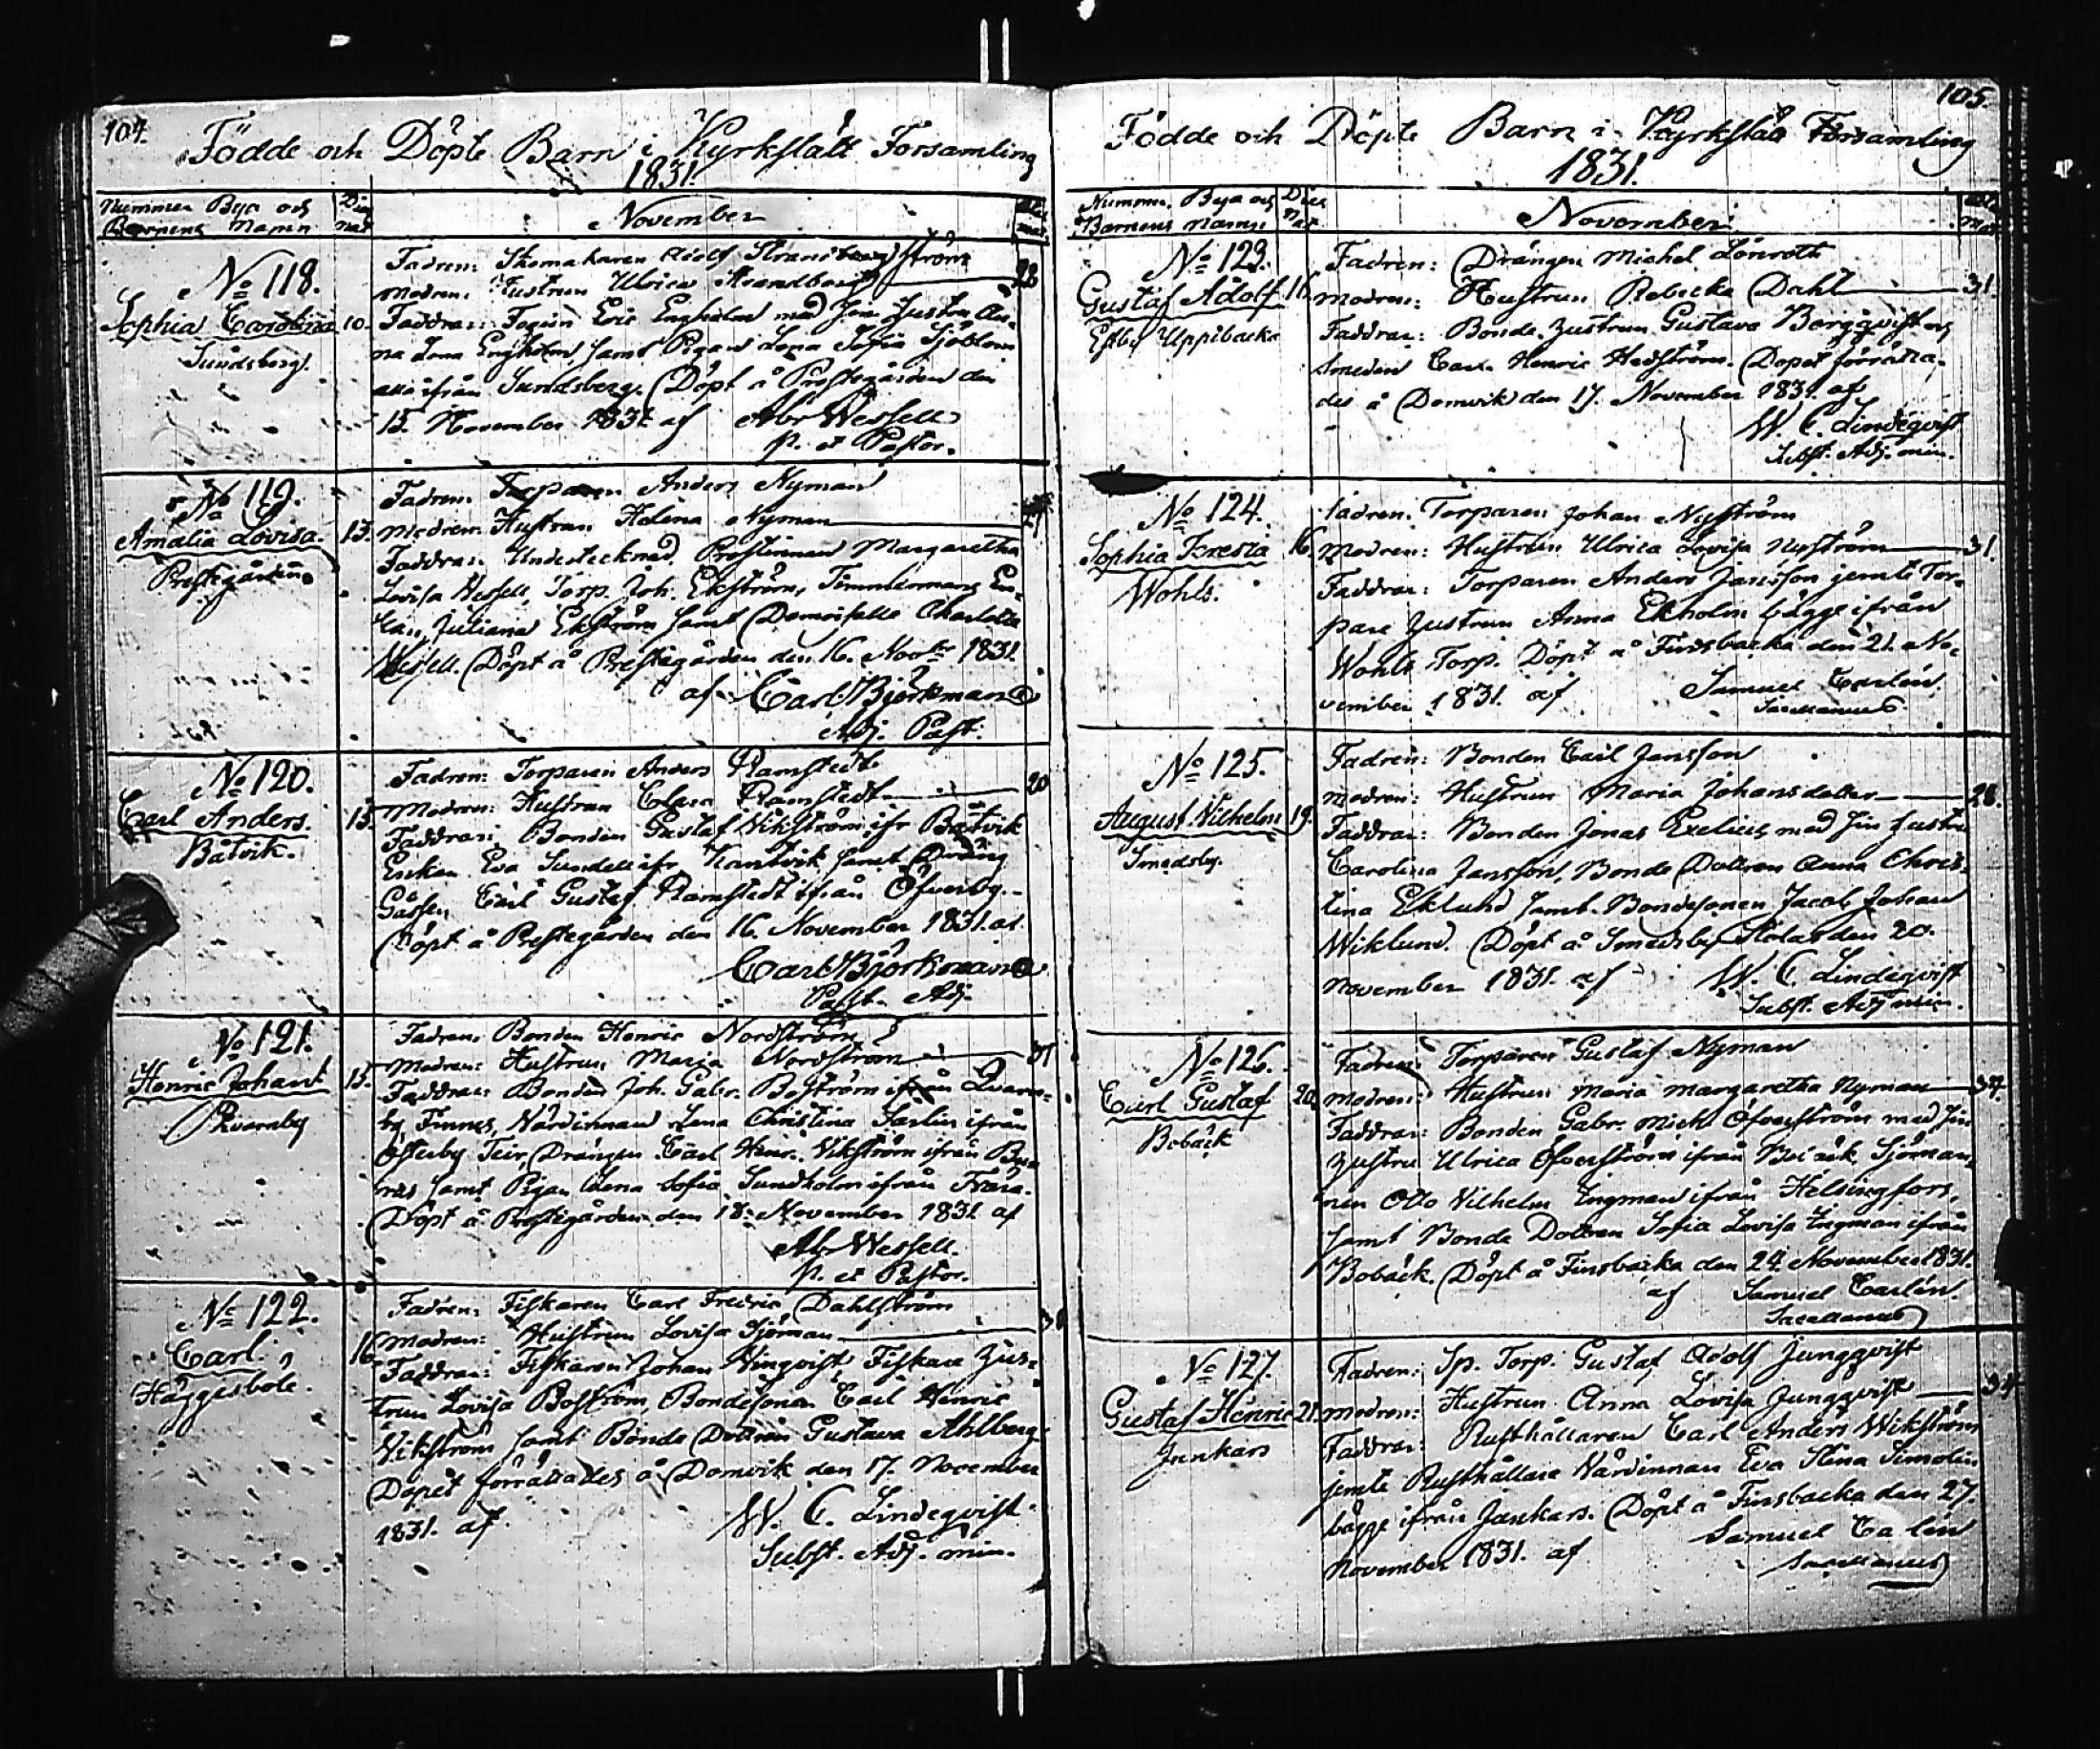 104.
Födde och Döpte Barn i Kyrkslätt Församling
1831.
Nummer Bya och Barnens Namn
November
No 118.
Sophia Carolina 10.
Sundsberg.
Fadren: Skomakaren Adolf Strandberg Ström
Modren: Hustrun Ulrica Strandberg 28
Faddrar: Eric Engholm med sin Hustru An-
na Lena Engholm, samt Pigan Lena Sofia Sjöblom
alla ifrån Sundsberg. Döpt å Prestegården den
15. November 1831. af Abr Wessell
p. et Pastor.
No 119.
Amalia Lovisa. 13.
Prestegården
Fadren: Torparen Anders Nyman
Modren: Hustrun Helena Nyman
Faddrar: Undertecknad, Prostinnan Margaretha
Lovisa Wessell, Torp. Joh. Ekström, Timmermans En-
kan Juliana Ekström samt Demoiselle Charlotta
Wessell. Döpt å Prestegården den 16. Novbr 1831.
af Carl Björkman
Adj. Past.
No 120.
Carl Anders. 15.
Båtvik.
Fadren: Torparen Anders Ramstedt
Modren: Hustrun Clara Ramstedt 20
Faddrar: Bonden Gustaf Wikström ifr Båtvik
Enkan Eva Sundell ifr Kantvik samt Dräng
Gåssen Carl Gustaf Ramstedt ifrån Öfverby.
Döpt å Prestegården den 16. November 1831. af
Carl Björkman
Past. Adj.
No 121.
Henric Johan 15.
Qvarnby
Fadren: Bonden Henric Nordström
Modren: Hustrun Maria Nordström
Faddrar: Bonden Joh. Gabr. Boström ifrån Qvarn-
by Finnes, Värdinnan Lena Christina Sarlin ifrån
Österby Teir, Drängen Carl Henr. Wikström ifrån
samt Pigan Lena Sofia Sundholm ifrån
Döpt å Prestegården den 18. November 1831 af
Abr Wessell.
p. et Pastor.
No 122.
Carl. 16
Häggesböle.
Fadren: Fiskaren Carl Fredric Dahlström
Modren: Hustrun Lovisa Sjöman
Faddrar: Fiskaren Johan Winqvist, Fiskare Hus-
trun Lovisa Boström, Bondesonen Carl Henric
Wikström samt Bonde Dottren Gustava Ahlberg.
Döpet förrättades å Domvik den 17. November
1831. af W. C. Lindeqvist
Subst. Adj. min.
105.
Födde och Döpte Barn i Kyrkslätt Församling
1831.
Nummer, Bya och Barnens Namn
November
No 123.
Gustaf Adolf 16.
Estby Uppibacka
Fadren: Drängen Michel Lönroth
Modren: Hustrun Rebecka Dahl 31.
Faddrar: Bonde Hustrun Gustava Bergqvist och
Smeden Carl Henric Hedström. Döpet förrätta-
des å Domvik den 17. November 1831. af
W. C. Lindeqvist
Subst. Adj. min.
No 124.
Sophia Teresia 16.
Wohls.
Fadren: Torparen Johan Nyström
Modren: Hustrun Ulrica Lovisa Nyström 31.
Faddrar: Torparen Anders Jansson jemte Tor-
pare Hustrun Anna Ekholm bägge ifrån
Wohls Torp. Döpt å Finsbacka den 21. No-
vember 1831. af Samuel Carlén
Sacellanus
No 125.
August Wilhelm 19.
Smedsby.
Fadren: Bonden Carl Jansson
Modren: Hustrun Maria Johansdotter 28.
Faddrar: Bonden Jonas Exelius med sin Hustru
Carolina Jansson, Bonde Dottren Anna Chris-
tina Eklund samt Bondesonen Jacob Johan
Wiklund. Döpt å Smedsby den 20.
November 1831. af W. C. Lindeqvist
Subst. Adj min.
No 126.
Carl Gustaf 20.
Bobäck
Fadren: Torparen Gustaf Nyman
Modren: Hustrun Maria Margaretha Nyman 37.
Faddrar: Bonden Gabr. Mick. Öfverström med sin
Hustru Ulrica Öfverström ifrån Bobäck, Sjöman-
nen Otto Wilhelm Engman ifrån Helsingfors,
samt Bonde Dottren Sofia Lovisa Engman ifrån
Bobäck. Döpt å Finsbacka den 24 November 1831.
af Samuel Carlén.
Sacellanus
No 127.
Gustaf Henric 21.
Junkars
Fadren: Sp. Torp. Gustaf Adolf Jungqvist
Modren: Hustrun Anna Lovisa Jungqvist 34
Faddrar: Rusthållaren Carl Anders Wikström
jemte Rusthållare Värdinnan Eva Stina Simolin
bägge ifrån Junkars. Döpt å Finsbacka den 27.
November 1831. af Samuel Carlén
Sacellanus